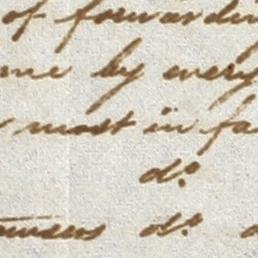 of forwardin
me by every
most in fa
do
do